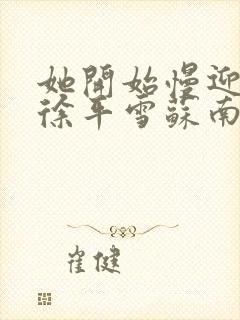 她開始慢迎
徐平雪蘇南
崔健